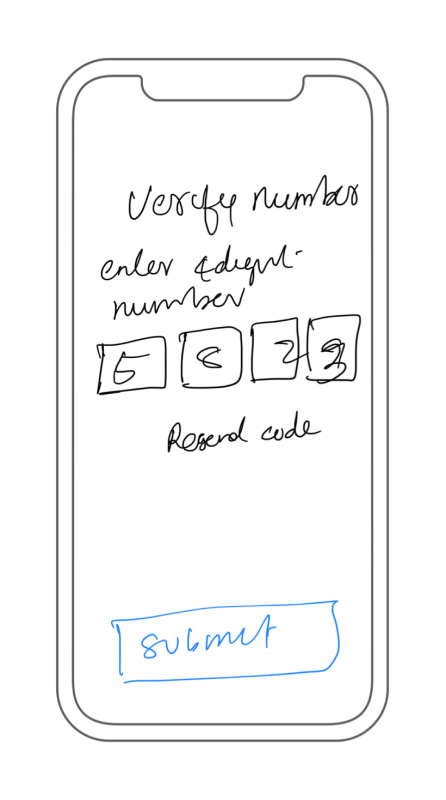 Verify number
enter 4 digit
number
5 8 2
Resend code
submit